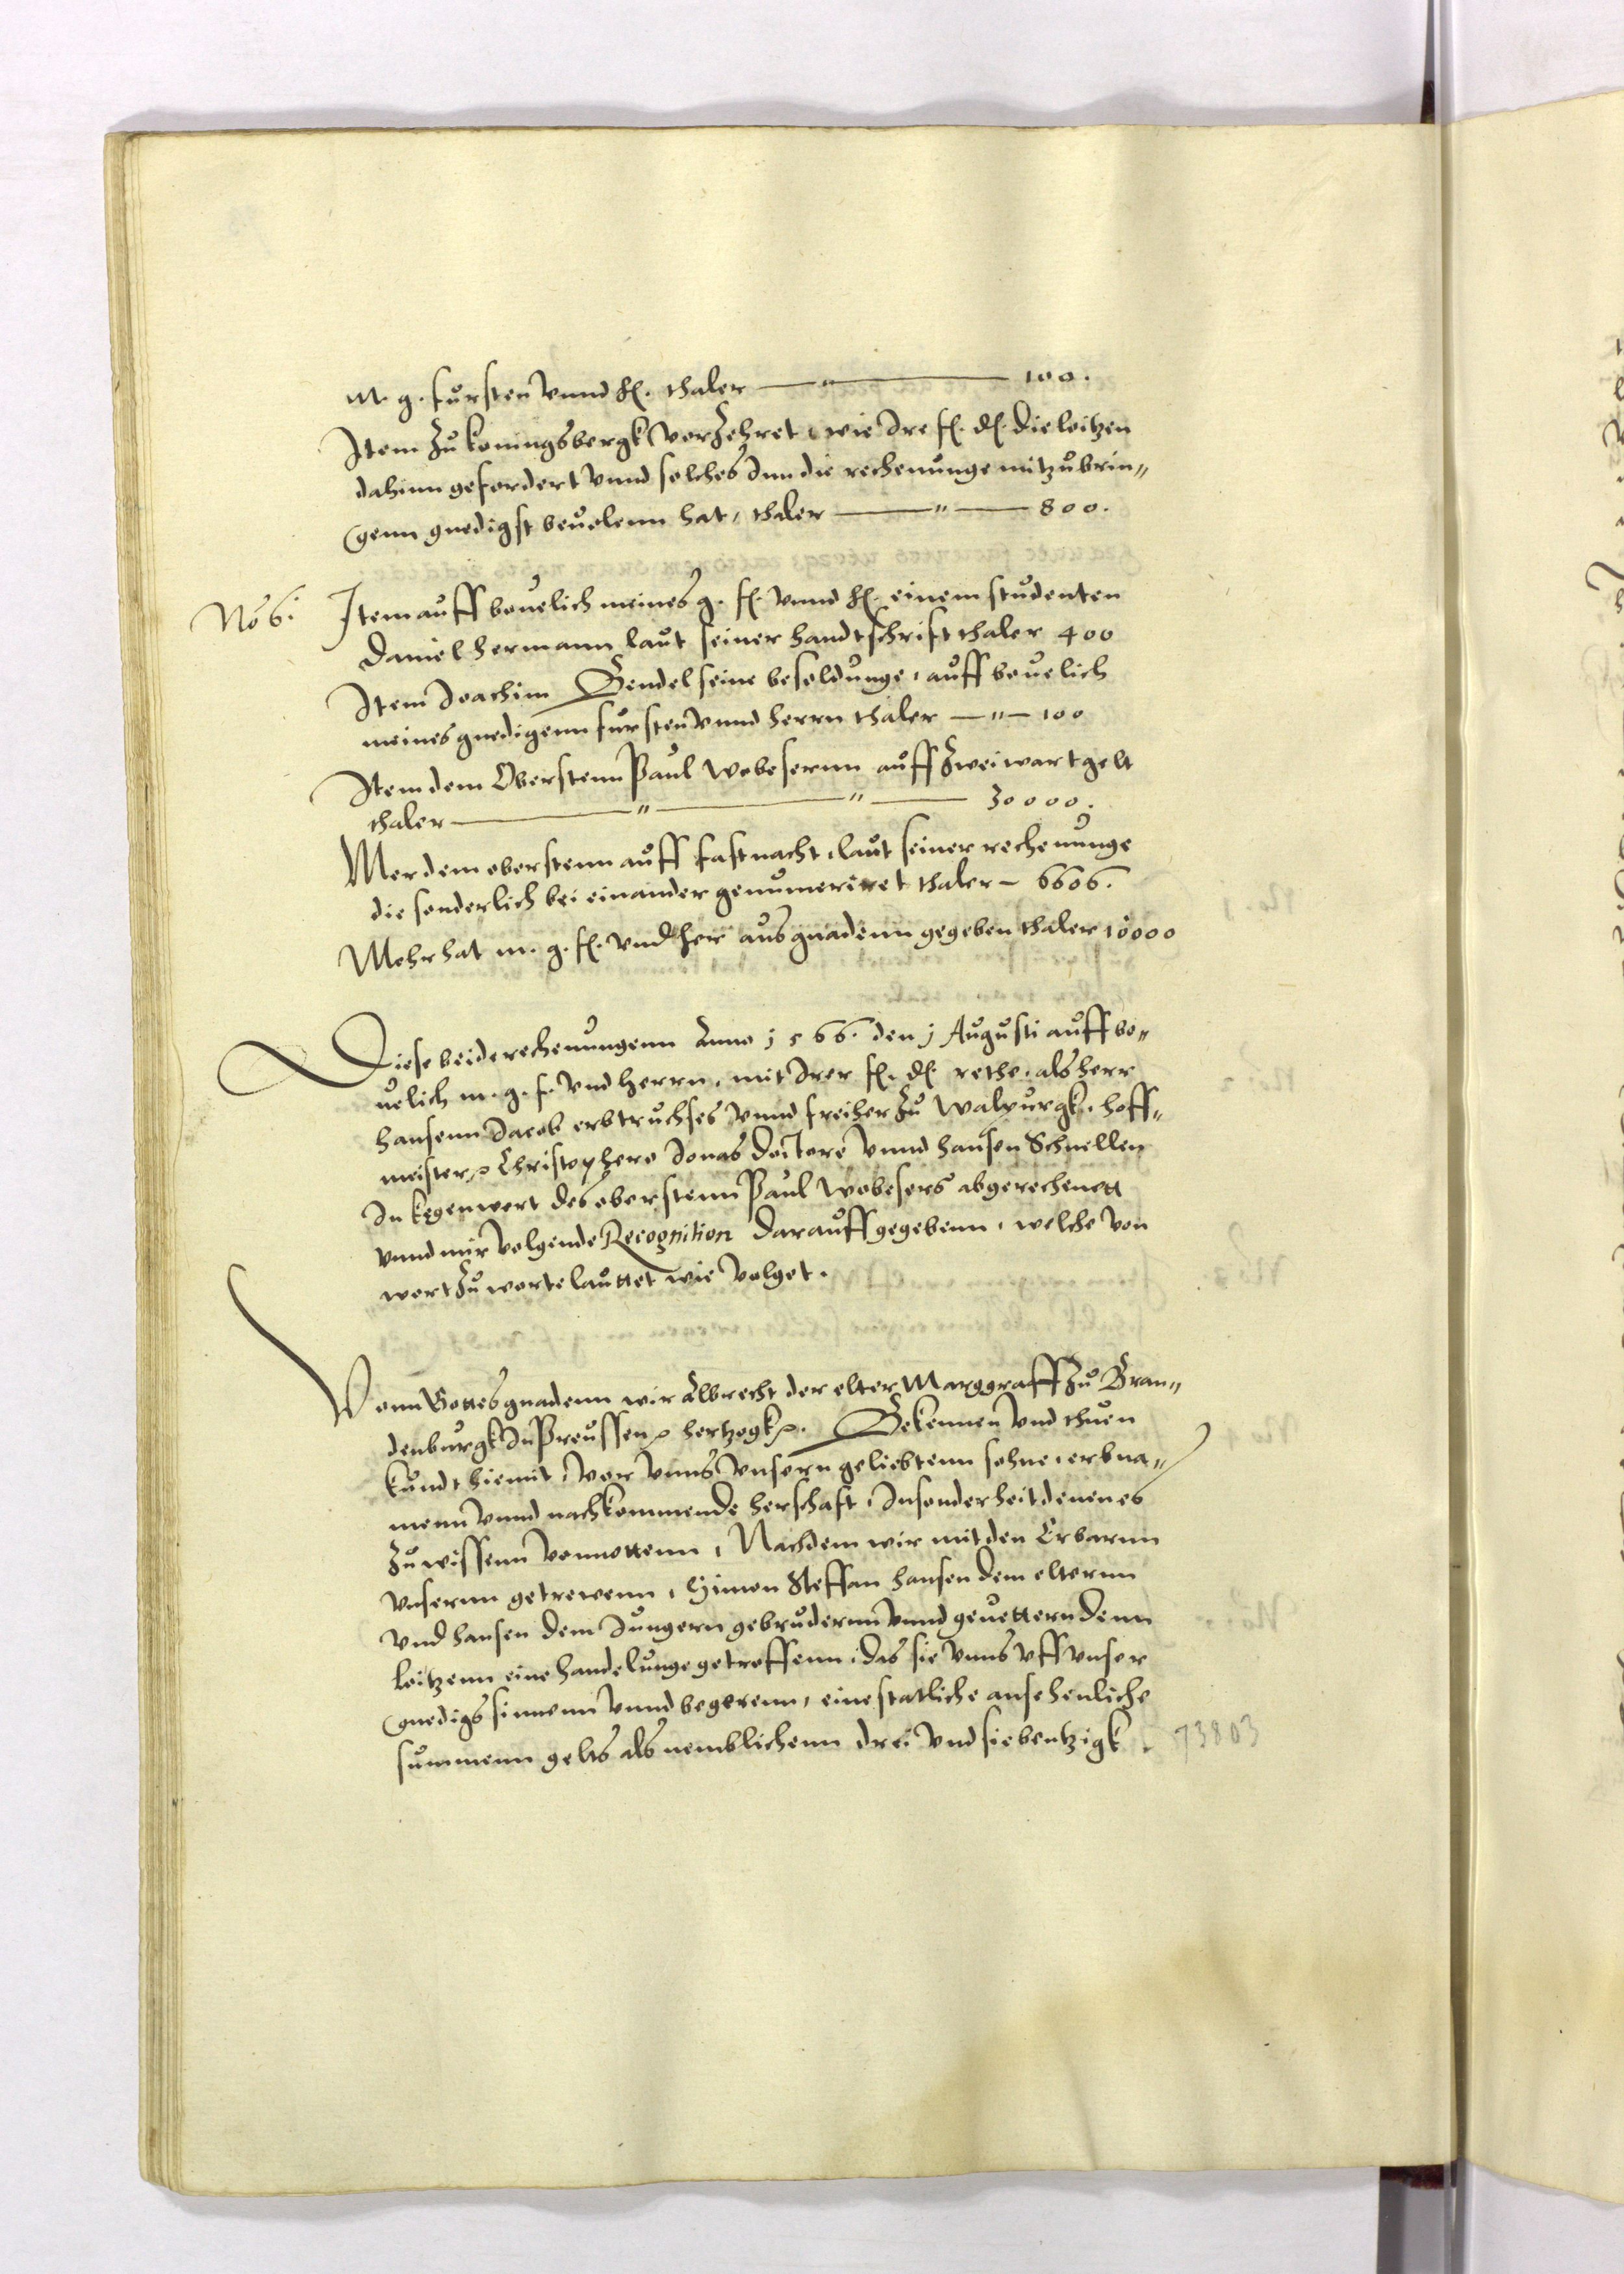 M. g. fursten vnnd H. thaler — " — 100.
Item zu koningsbergk vorzehret, wie Ire f. d. die loitzen
dahinn gefordert vnnd solches Inn die rechenunge mitzubrin"
genn gnedigst beuolenn hat, thaler — " — 800.
No 6. Item auff beuelich meines g. f. vnnd H. einem studenten
Daniel hermann laut seiner handtschrift thaler 400
Item Joachim Bendel seine besoldunge, auff beuelich
meines gnedigenn fursten vnnd herrn thaler — " — 100
Item dem Oberstenn Paul wobesernn auff zwei wartgelt
thaler — " — " — 30000.
Mer dem oberstenn auff fastnacht, laut seiner rechenunge
die sonderlich bei einander genumeriret thaler — 6606.
Mehr hat m. g. f. vnd her aus gnadenn gegeben thaler 10000
Diese beide rechenungenn Anno j566. den j Augusti auff be"
uelich m. g. f. vnd herrn, mit Irer f. d. rethe, als herr
hansenn Jacob erbtruchses vnnd freiher zu Walpurgk, hoff"
meister, Christophero Jonas doctore vnnd hansen Schnellen
In kegenwert des oberstenn Paul wobesers abgerechenett
vnnd mir volgende Recognition darauff gegebenn, welche von
wort zu worte lauttet wie volget.
Vonn Gottes gnadenn wir Albrecht der elter Marggraff zu Bran"
denburgk In Preussen hertzogk. Bekennen vnd thuen
kundt hiemit, vor vnns vnsern geliebtenn sohne, erbna"
menn vnnd nachkommende herschaft, Insonderheit denen es
zu wissenn vonnottenn, Nachdem wir mit den Erbarnn
vnsernn getrewenn, Simon Steffan hansen dem elternn
vnd hansen dem Jungern gebrudernn vnnd geuettern denn
loitzenn eine handelunge getroffenn, das sie vnns vff vnser
gnedigs sinnenn vnnd begerenn, eine statliche ansehenliche
summenn gelts als nemblichenn drei vnd siebentzigk
73803